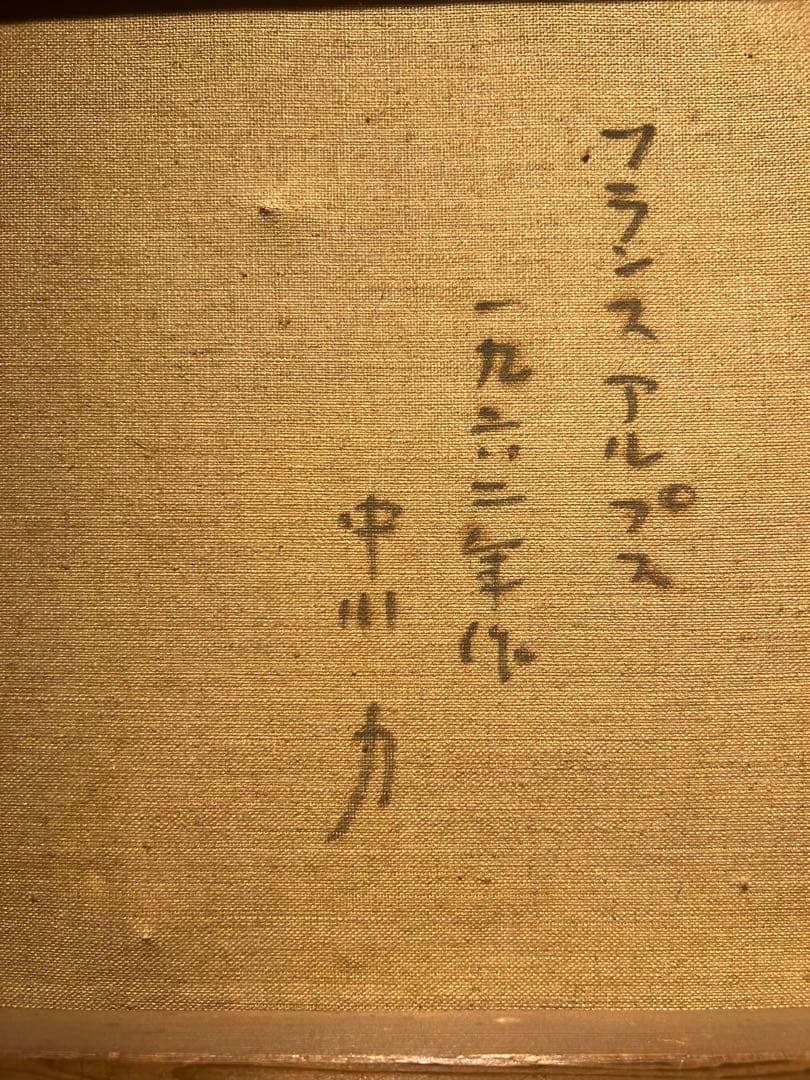 フランスアルプス
一九六二年作
中川力